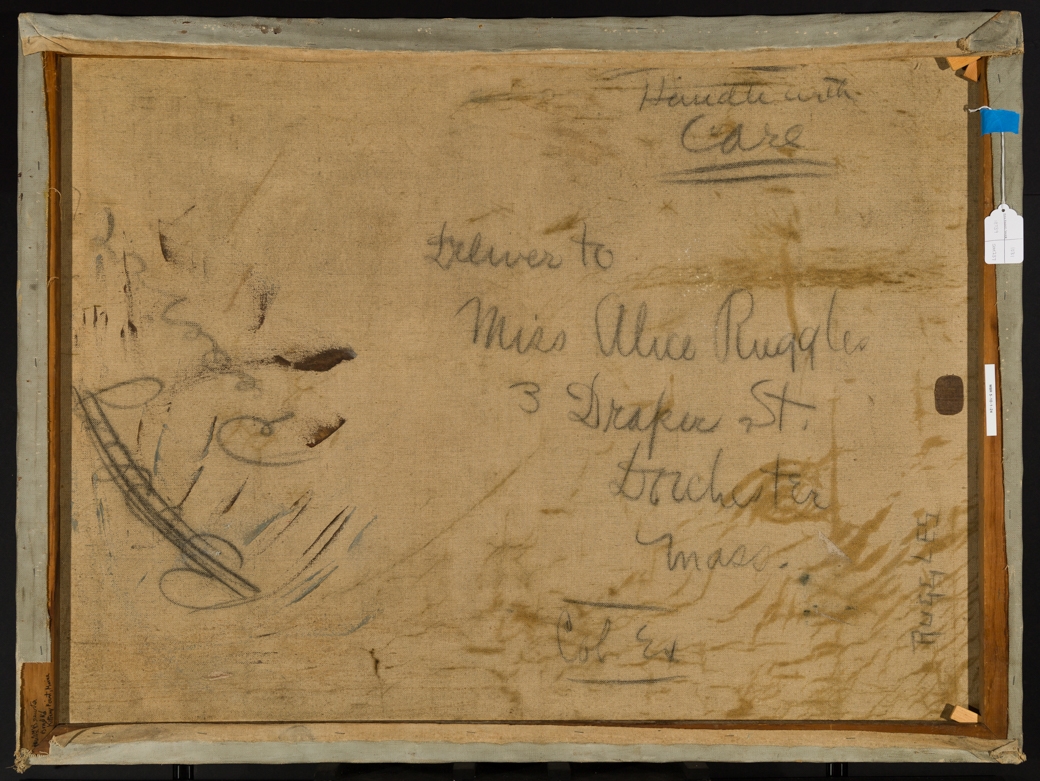 Handle with
Care
Deliver to
Miss Alice Ruggles
3 Draper St.
Dorchester
Mass.
Col Ex
RUGGLES